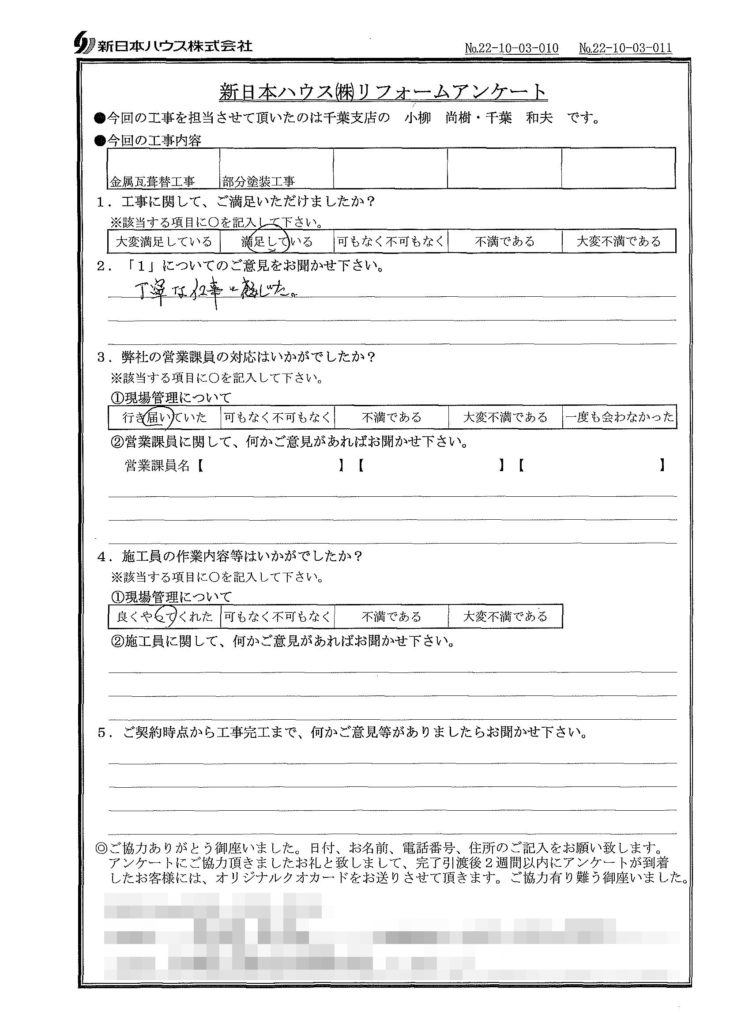 新日本ハウス株式会社 No.22-10-03-010 No.22-10-03-011
新日本ハウス㈱リフォームアンケート
●今回の工事を担当させて頂いたのは千葉支店の 小柳 尚樹・千葉 和夫 です。
●今回の工事内容
金属瓦葺替工事 部分塗装工事
1．工事に関して、ご満足いただけましたか？
※該当する項目に○を記入して下さい。
大変満足している 満足している 可もなく不可もなく 不満である 大変不満である
2．「1」についてのご意見をお聞かせ下さい。
丁寧な仕事に感じた。
3．弊社の営業課員の対応はいかがでしたか？
※該当する項目に○を記入して下さい。
①現場管理について
行き届いていた 可もなく不可もなく 不満である 大変不満である 一度も会わなかった
②営業課員に関して、何かご意見があればお聞かせ下さい。
営業課員名【 】【 】【 】
4．施工員の作業内容等はいかがでしたか？
※該当する項目に○を記入して下さい。
①現場管理について
良くやってくれた 可もなく不可もなく 不満である 大変不満である
②施工員に関して、何かご意見があればお聞かせ下さい。
5．ご契約時点から工事完工まで、何かご意見等がありましたらお聞かせ下さい。
◎ご協力ありがとう御座いました。日付、お名前、電話番号、住所のご記入をお願い致します。
アンケートにご協力頂きましたお礼と致しまして、完了引渡後２週間以内にアンケートが到着
したお客様には、オリジナルクオカードをお送りさせて頂きます。ご協力有り難う御座いました。